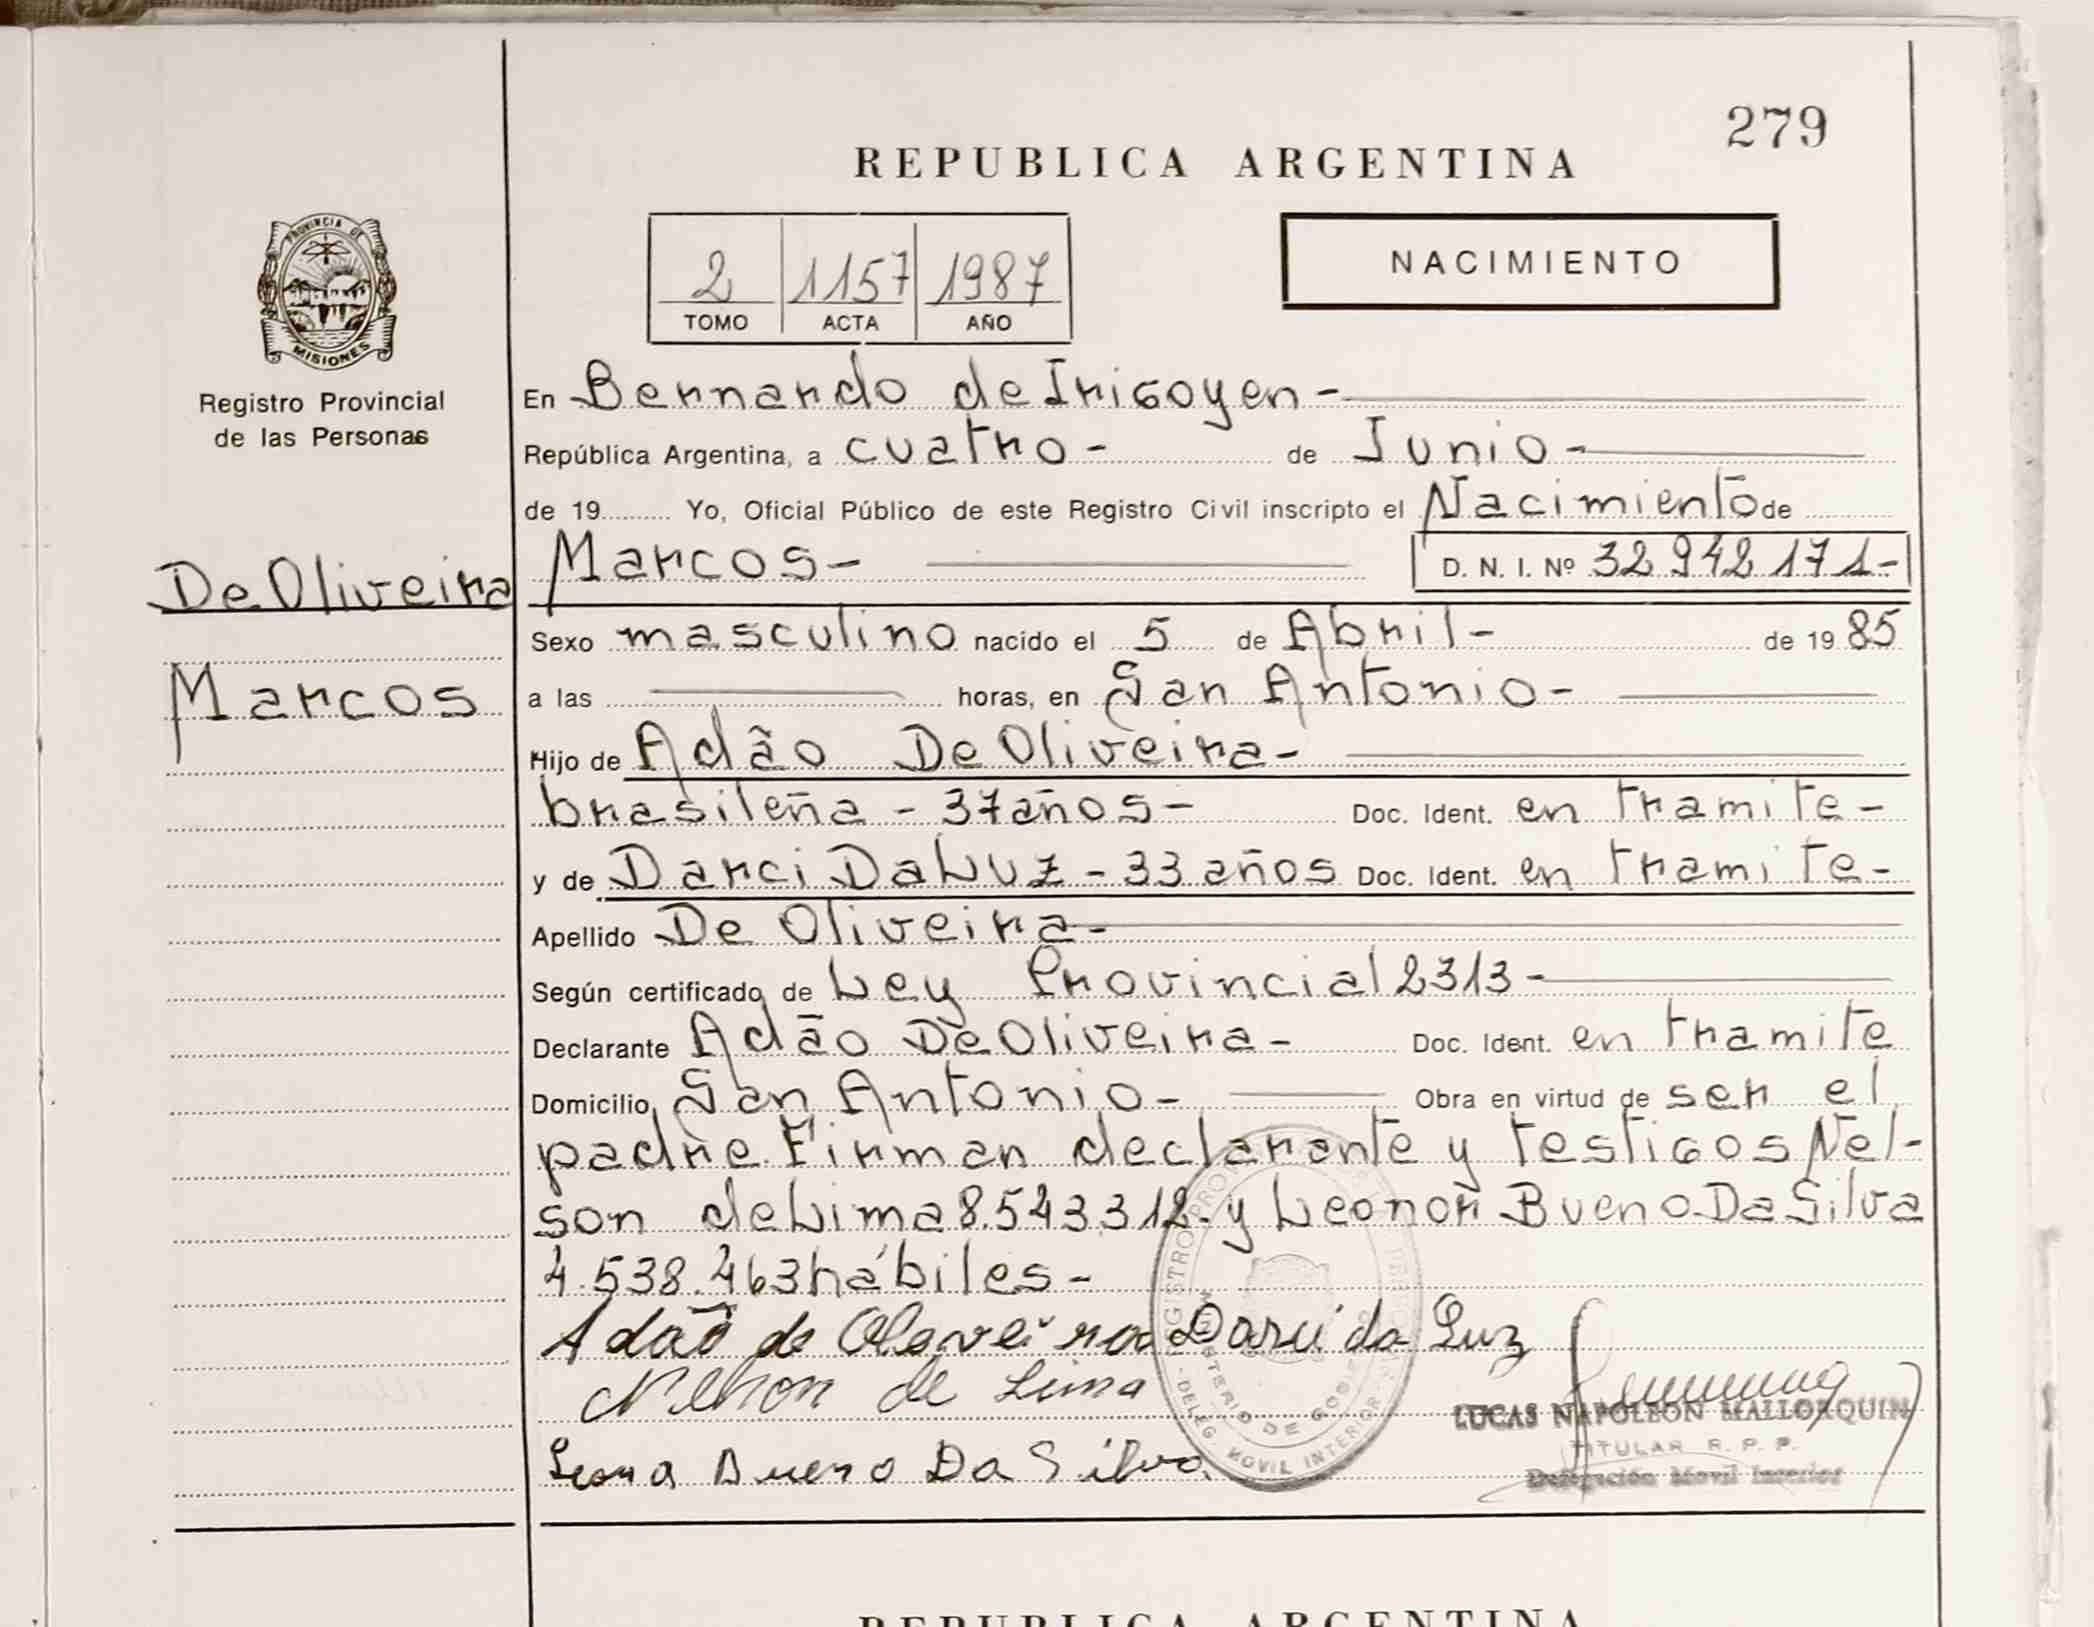 279
REPUBLICA ARGENTINA
PROVINCIA DE
MISIONES
Registro Provincial
de las Personas
2 1157 1987
TOMO ACTA AÑO
NACIMIENTO
En Bernardo de Irigoyen-
República Argentina, a cuatro- de Junio-
de 19 Yo, Oficial Público de este Registro Civil inscripto el Nacimiento de
De Oliveira
Marcos
Marcos- D. N. I. Nº 32 942 171-
Sexo masculino nacido el 5 de Abril- de 19 85
a las horas, en San Antonio-
Hijo de Adão De Oliveira-
brasileña - 37 años- Doc. Ident. en tramite-
y de Darci Da Luz - 33 años Doc. Ident. en tramite-
Apellido De Oliveira-
Según certificado de Ley Provincial 2313-
Declarante Adão De Oliveira- Doc. Ident. en tramite
Domicilio San Antonio- Obra en virtud de ser el
padre. Firman declarante y testigos Nel-
son de Lima 8.543.312- y Leonor Bueno Da Silva
4.538.463 hábiles-
Adão de Darci da Luz
de Lima
Bueno Da Silva
LUCAS NAPOLEON MALLORQUIN
TITULAR R. P. P.
Delegación Movil Interior
MINISTERIO DE
DELEG. MOVIL INTERIOR
REPUBLICA ARGENTINA